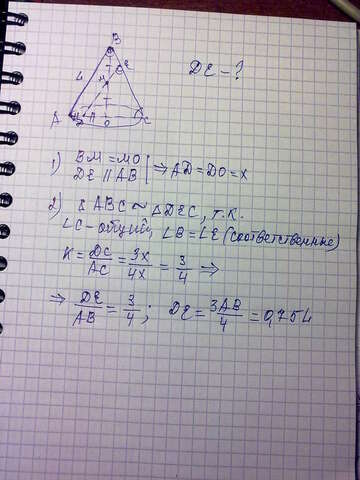 B
L
E
M
A
D
O
C
DE - ?
1) BM = MO
DE || AB | ⇒ AD = DO = x
2) ABC ~ △DEC, т.к.
∠C - общий, ∠B = ∠E (соответственные)
K = DC/AC = 3x/4x = 3/4 ⇒
⇒ DE/AB = 3/4 ; DE = 3AB/4 = 0,75L